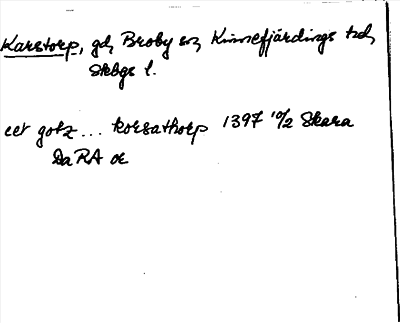 Karstorp, gd, Broby sn, Kinnefjärdings hd,
Skbgs l.
eet gotz... korsathorp 1397 10/2 Skara
DaRA or